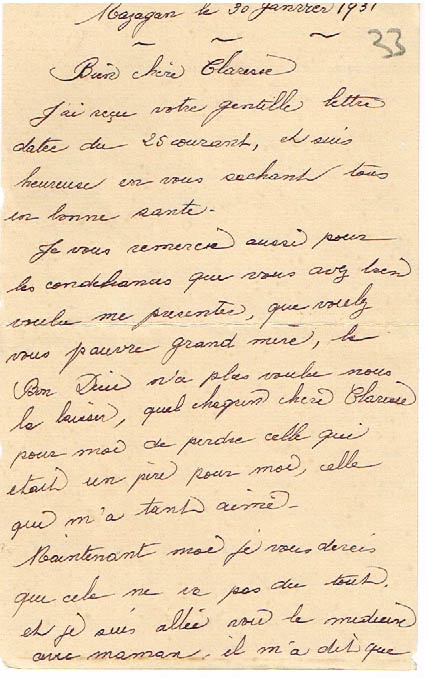 Mazagan le 30 janvier 1931
33
Bien chère Clarisse
J'ai reçu votre gentille lettre
datée du 25 courant, et suis
heureuse en vous sachant tous
en bonne santé.
Je vous remercie aussi pour
les condoléances que vous avez bien
voulu me presenter, que voulez
vous pauvre grand mere, le
Bon Dieu n'a plus voulu nous
la laisser, quel chagrin chère Clarisse
pour moi de perdre celle qui
etait un père pour moi, celle
qui m'a tant aimé.
Maintenant moi je vous dirais
que cela ne va pas du tout.
et je suis allée voir le medecin
avec maman. il m'a dit que